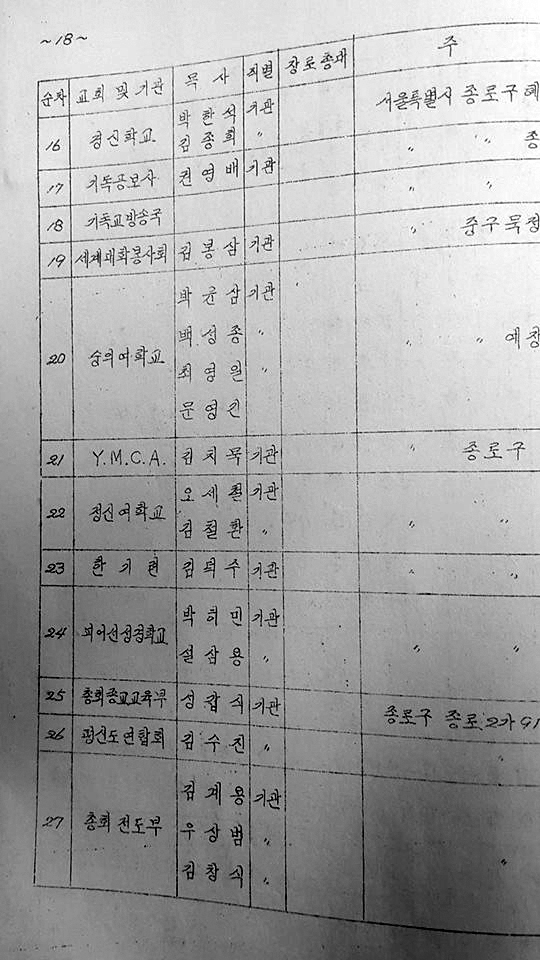 ~18~
순차 교회 및 기관 목사 직별 장로총대 주
16 경신학교 박한석 기관 서울특별시 종로구 혜
김종희 〃 〃 〃 종
17 기독공보사 권영배 기관 〃 〃
18 기독교방송국
19 세계대화봉사회 김봉삼 기관 중구 묵정
20 숭의여학교 박윤삼 기관
백성종 〃 〃 〃 예장
최영일 〃
문영긴
21 Y.M.C.A. 김치묵 기관 〃 종로구
22 정신여학교 오세철 기관
김철환 〃 〃 〃
23 한기련 김덕수 기관 〃 〃
24 피어선성경학교 박희민 기관
설삼용 〃 〃 〃
25 총회종교교육부 성갑식 기관 종로구 종로2가91
26 평신도연합회 김수진 〃 〃
27 총회전도부 김계용 기관
우상범 〃 〃
김창식 〃